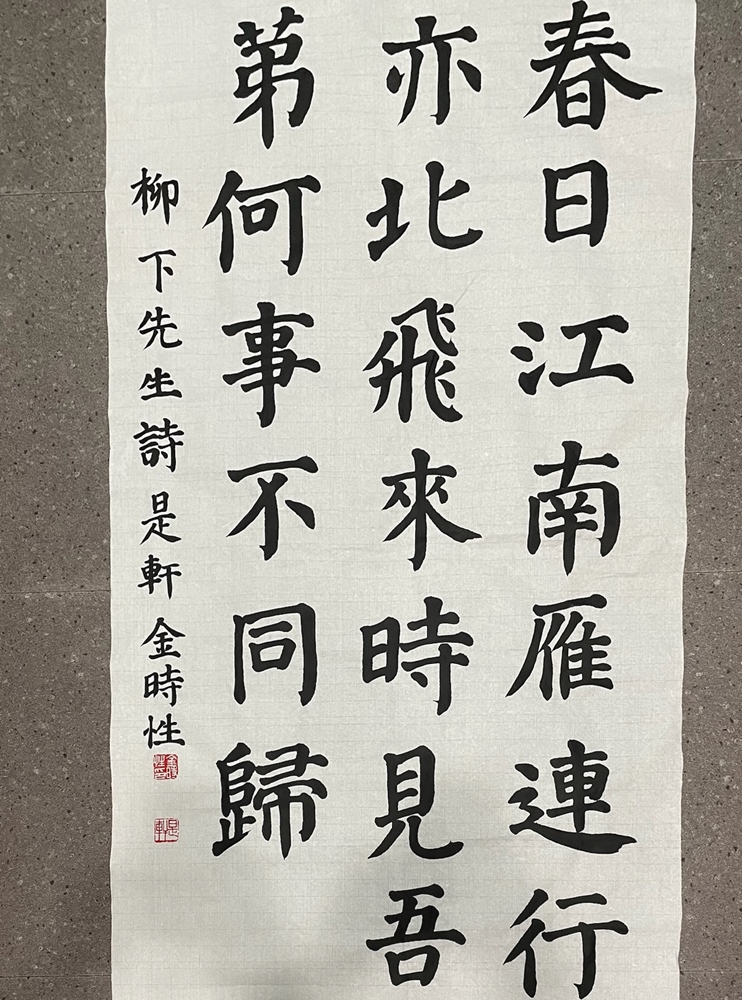 春日江南雁連行
亦北飛來時見吾
弟何事不同歸
柳下先生詩 是軒 金時性
金時性印
是軒